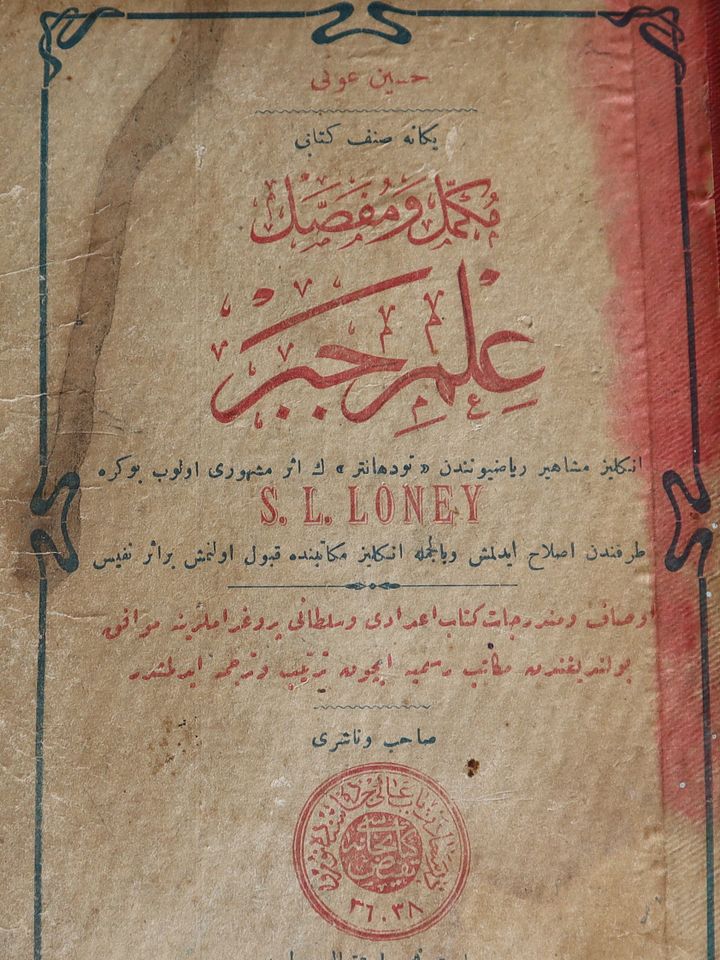 حسين عونی
يكانه صنف كتابی
مُكمّل وَ مُفَصَّل
عِلمِ جَبر
انكليز مشاهير رياضيونندن «تودهانتر» ك اثر مشهوری اولوب بوكره
S. L. LONEY
طرفندن اصلاح ايدلمش وبالجمله انكليز مكاتبنده قبول اولنمش براثر نفيس
اوصاف ومندرجات كتاب اعدادی وسلطانی پروغراملرينه موافق
بولنديغندن مكاتب رسميه ايچون ترتيب وترجمه ايدلمشدر
صاحب وناشری
٣٦٠٣٨